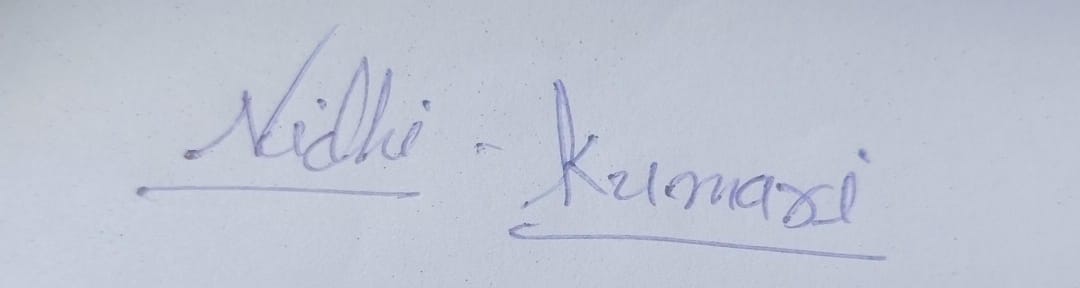 Nidhi - Kumari